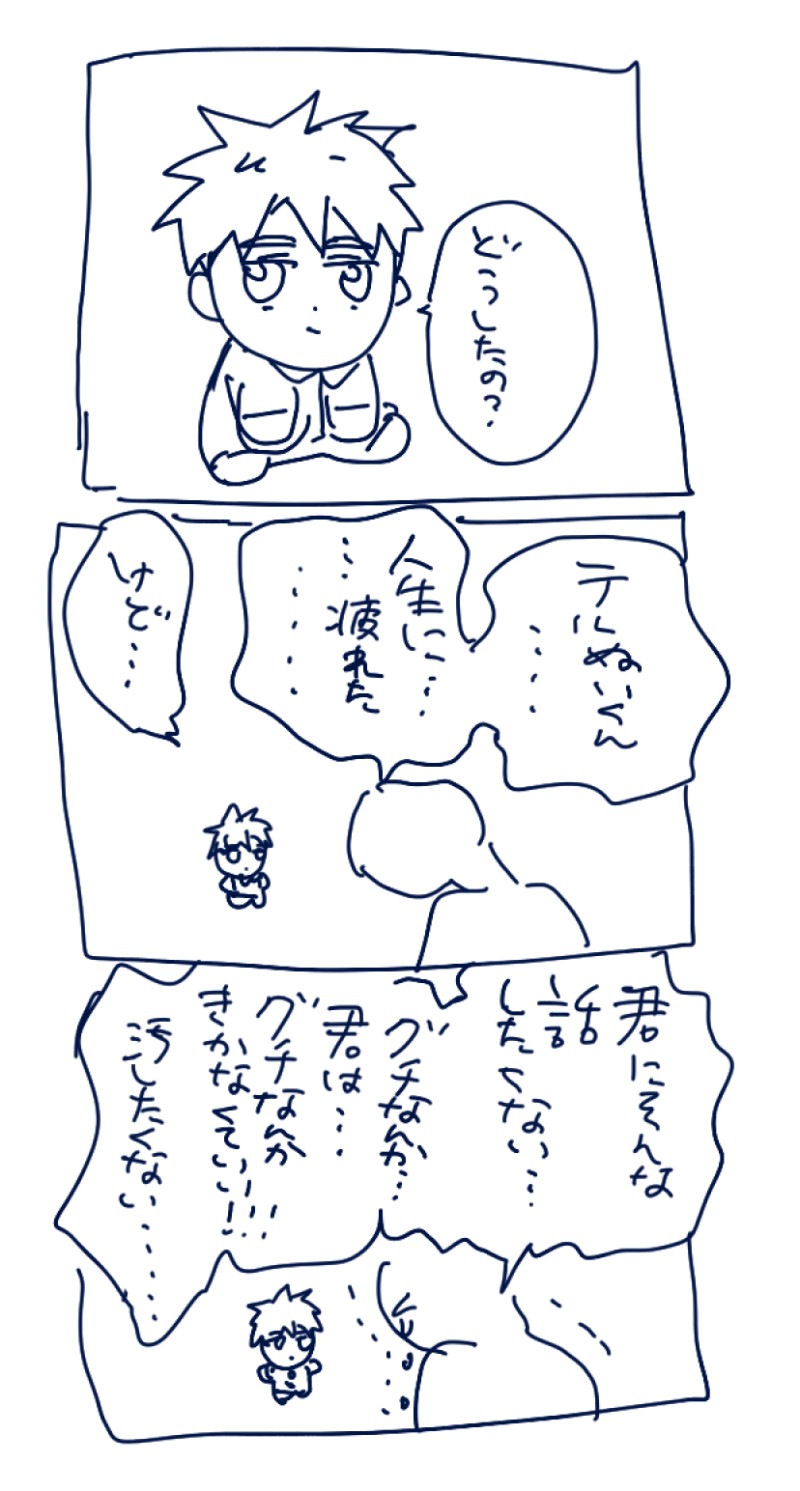 どうしたの?
テルぬいくん
……
人生に…
…疲れた
……
けど…
君にそんな
話
したくない…
グチなんか…
君は…
グチなんか
きかなくていい!!!
汚したくない……